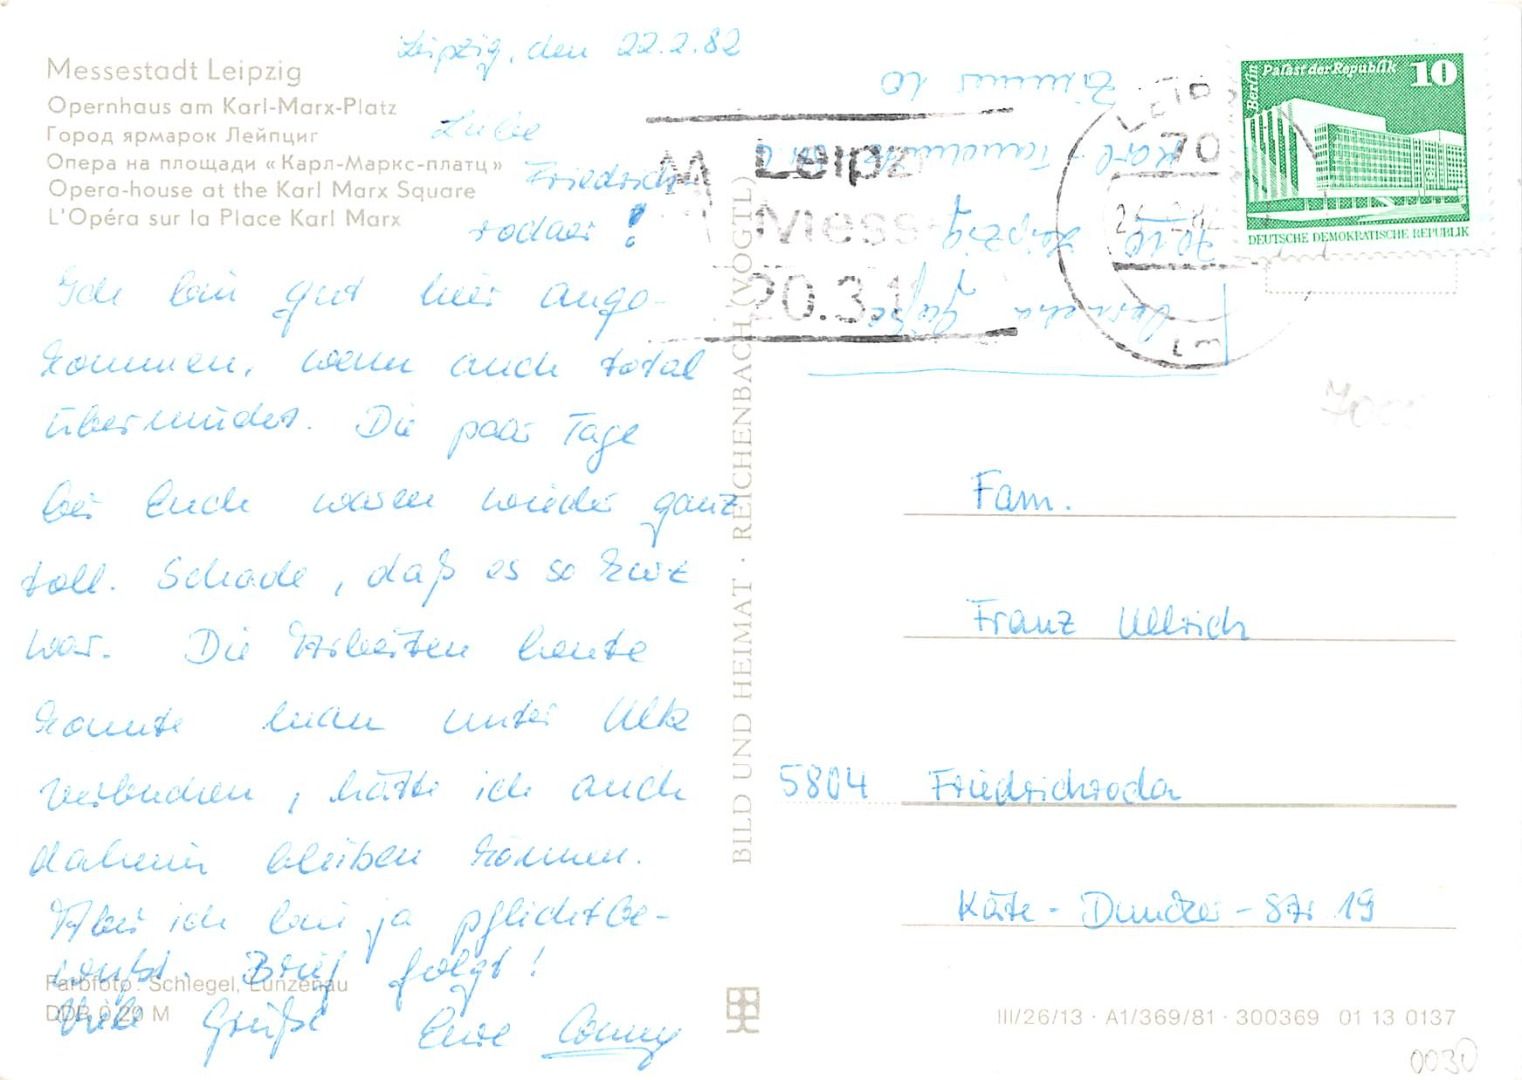 Messestadt Leipzig
Opernhaus am Karl-Marx-Platz
Город ярмарок Лейпциг
Опера на площади «Карл-Маркс-платц»
Opera-house at the Karl Marx Square
L'Opéra sur la Place Karl Marx
Leipzig, den 22.2.82
Liebe
Friedrich-
rodaer!
Ich bin gut hier ange-
kommen, wenn auch total
übermüdet. Die paar Tage
bei Euch waren wieder ganz
toll. Schade, daß es so kurz
war. Die Arbeiten heute
konnte man unter Ulk
verbuchen, hätte ich auch
daheim bleiben können.
Aber ich bin ja pflichtbe-
wußt. Brief folgt!
Viele Grüße Eure Conny
Farbfoto: Schlegel, Lunzenau
DDR 0,20 M
BILD UND HEIMAT · REICHENBACH (VOGTL)
7010 Leipzig
Karl-
Zimmer 10
M Leipz
Mess
20.3.
70
Berlin Palast der Republik 10
DEUTSCHE DEMOKRATISCHE REPUBLIK
Fam.
Franz Ullrich
5804 Friedrichroda
Käte-Duncker-Str 19
III/26/13 · A1/369/81 · 300369 01 13 0137
0030